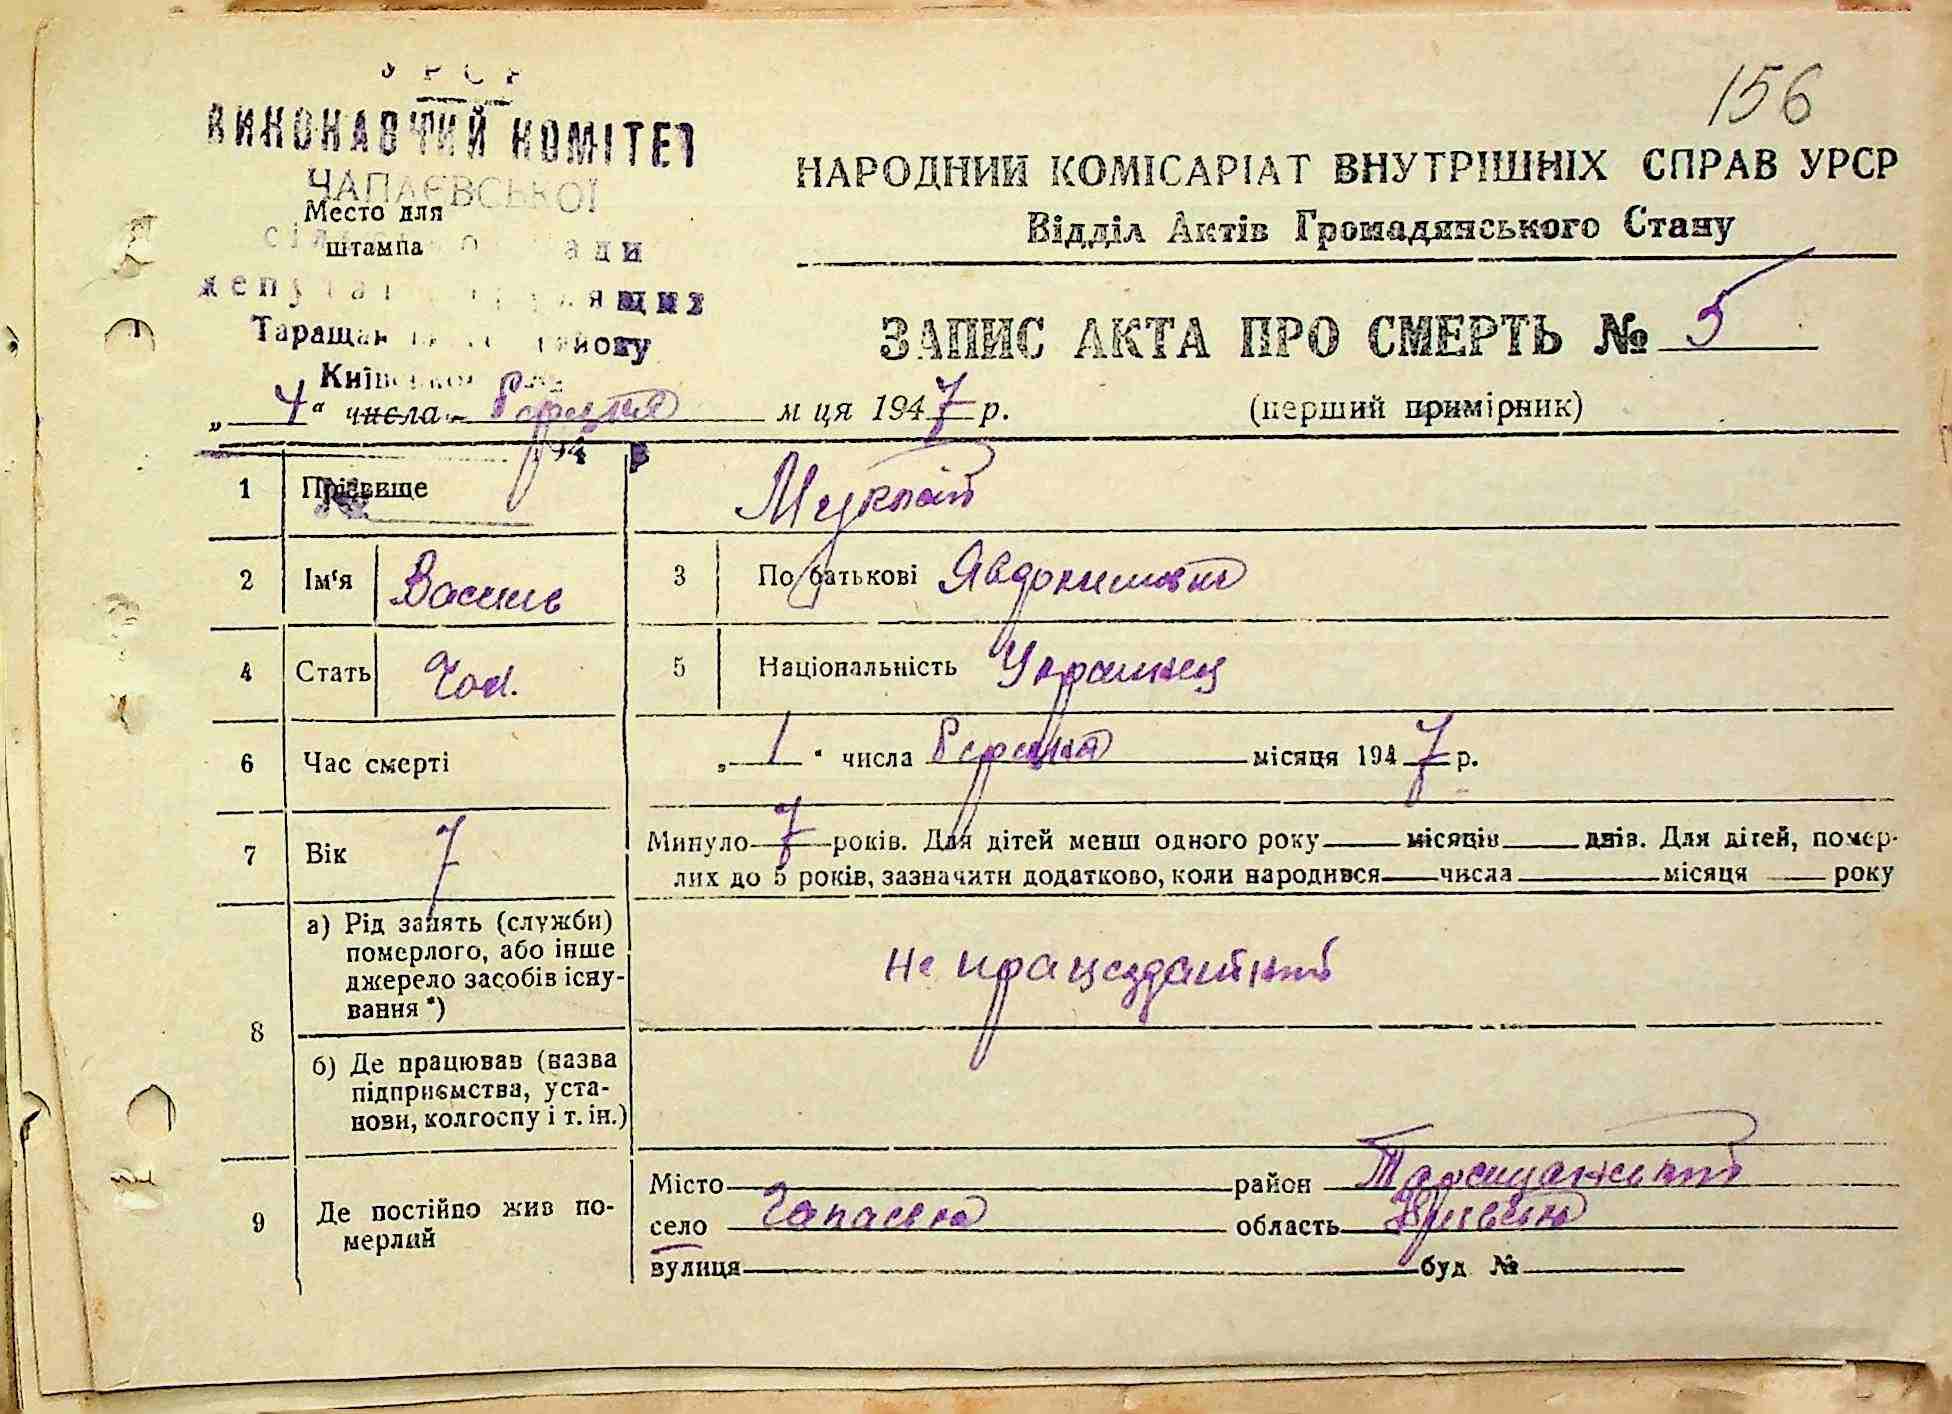 УРСР
156
ВИКОНАВЧИЙ КОМІТЕТ
ЧАПАЄВСЬКОЇ
Место для
штампа
ади
Таращан йову
НАРОДНИЙ КОМІСАРІАТ ВНУТРІШНІХ СПРАВ УРСР
Відділ Актів Громадянського Стану
ЗАПИС АКТА ПРО СМЕРТЬ № 5
„ 4 “ числа Березня м ця 1947 р.
(перший примірник)
1 Прізвище
2 Ім'я Василь
3 По батькові Явдокимович
4 Стать Чол.
5 Національність Украинец
6 Час смерті „ 1 “ числа Березня місяця 1947 р.
7 Вік 7 Минуло 7 років. Для дітей менш одного року місяців днів. Для дітей, помер-
лих до 5 років, зазначити додатково, коли народився числа місяця року
8 а) Рід занять (служби)
померлого, або інше
джерело засобів існу-
вання *)
не працездатний
б) Де працював (назва
підприємства, уста-
нови, колгоспу і т. ін.)
9 Де постійно жив по-
мерлий
Місто район Таращанський
село Чапаєвка область Київська
вулиця буд №